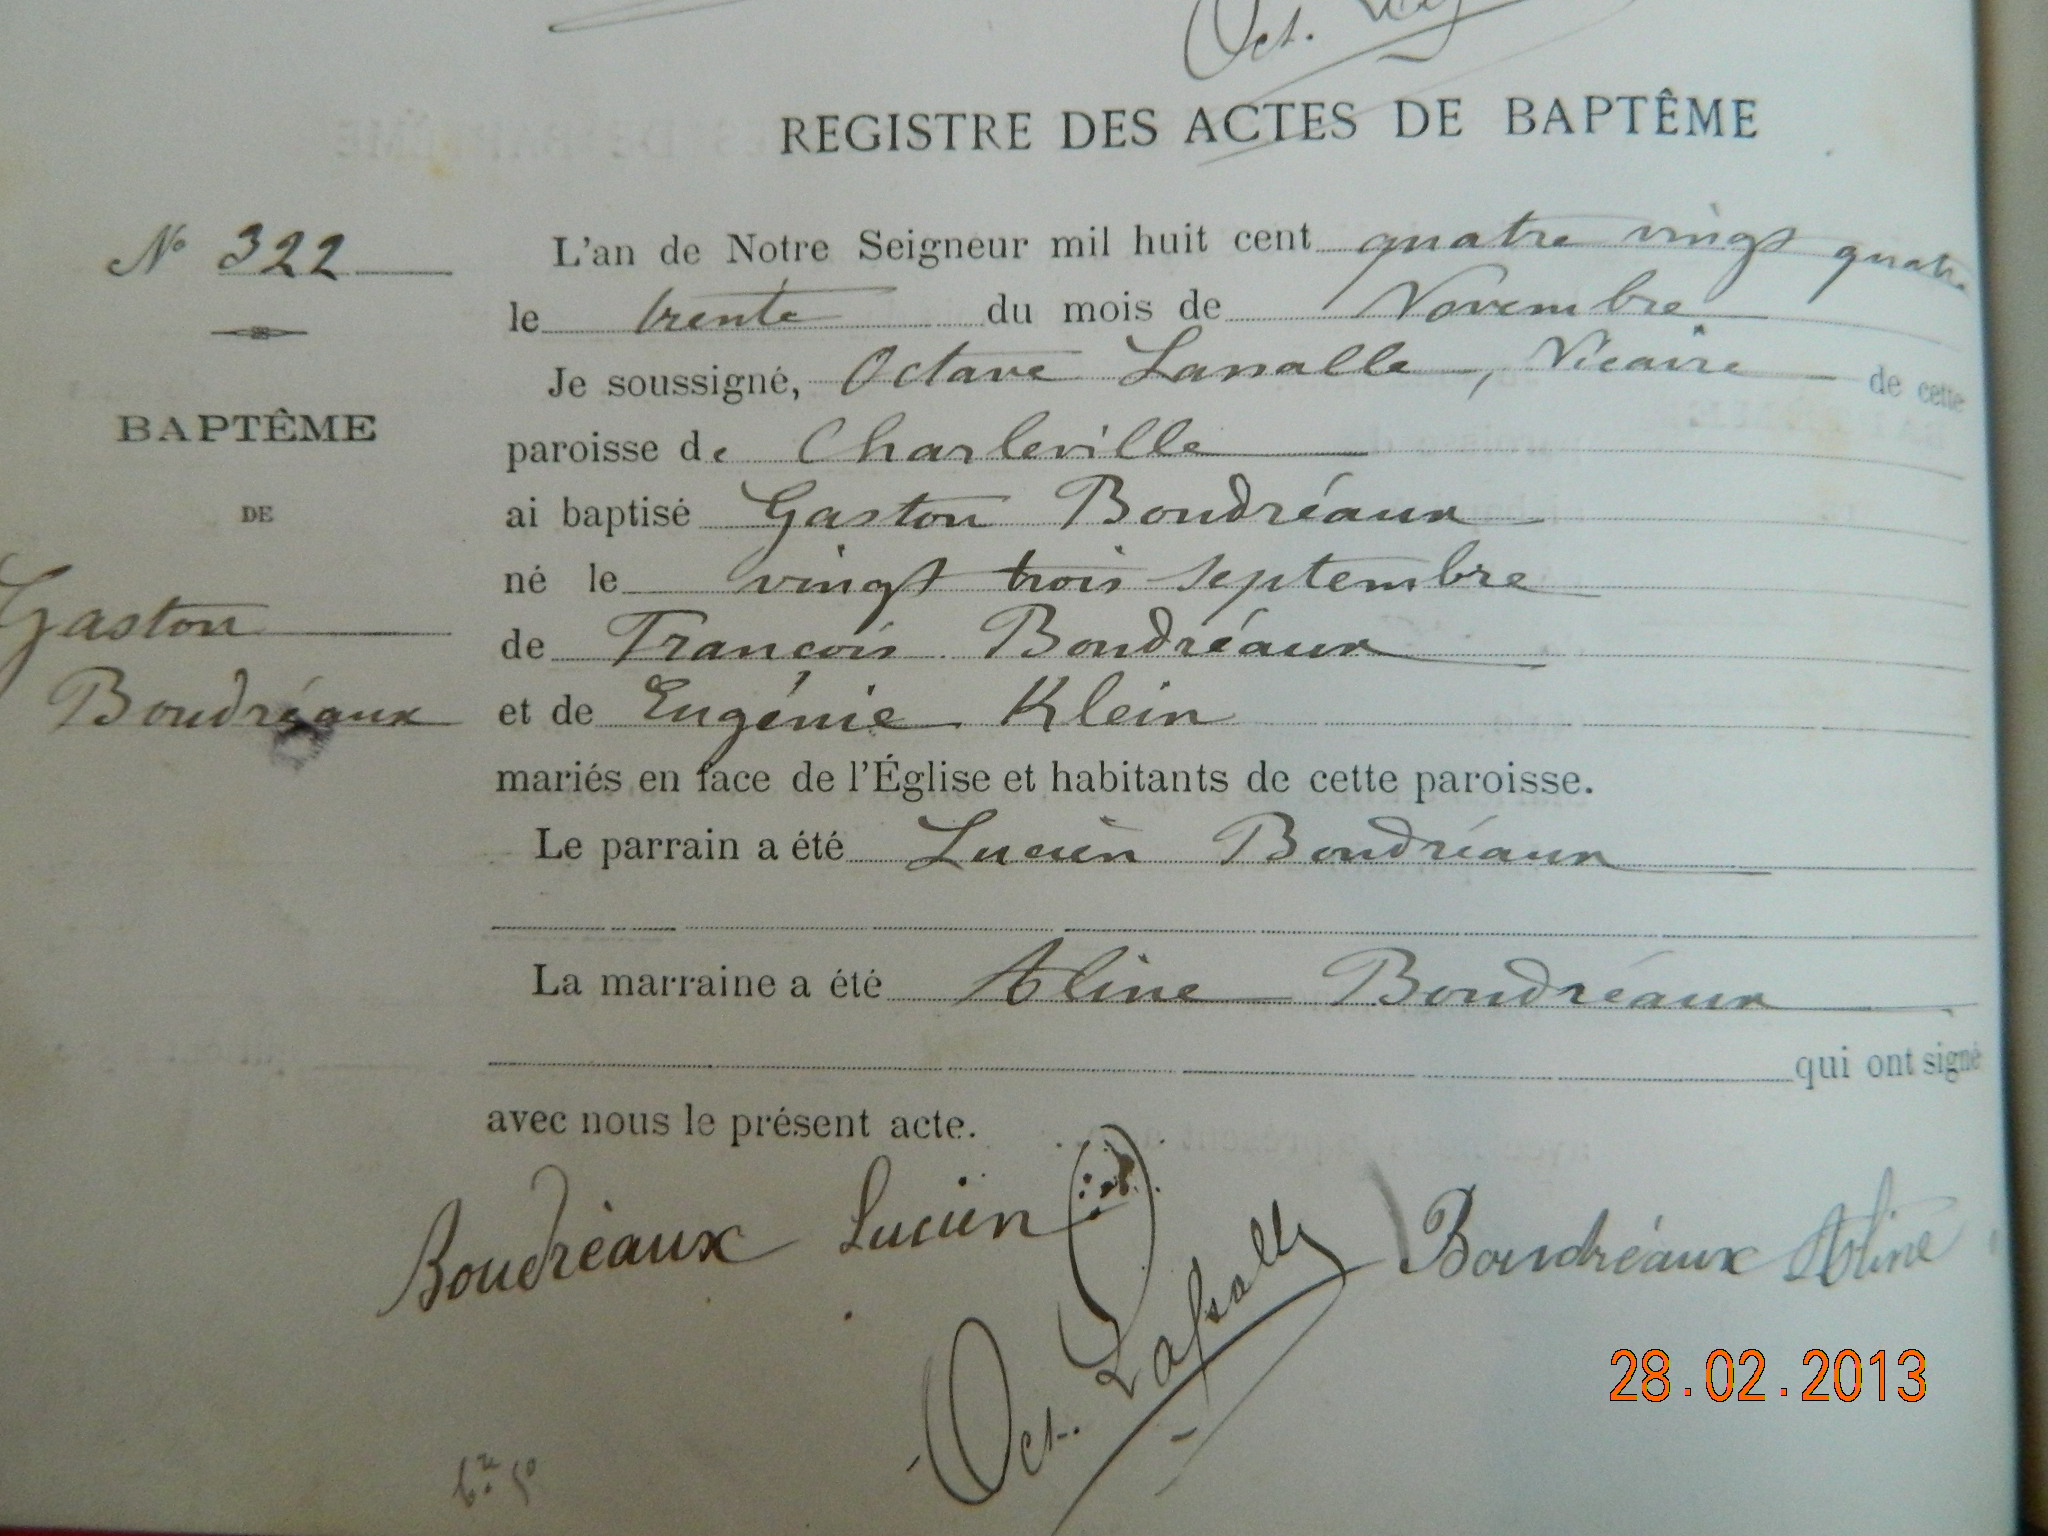 Oct.
REGISTRE DES ACTES DE BAPTÊME
N° 322
L'an de Notre Seigneur mil huit cent quatre vingt quatre
le trente du mois de Novembre
Je soussigné, Octave Lassalle, Vicaire de cette
paroisse de Charleville
BAPTÊME
DE
Gaston
Boudréaux
ai baptisé Gaston Boudréaux
né le vingt trois septembre
de François Boudréaux
et de Eugénie Klein
mariés en face de l'Église et habitants de cette paroisse.
Le parrain a été Lucien Boudréaux
La marraine a été Aline Boudréaux
qui ont signé
avec nous le présent acte.
Boudréaux Lucien
Boudréaux Aline
Oct. Lassalle
28.02.2013